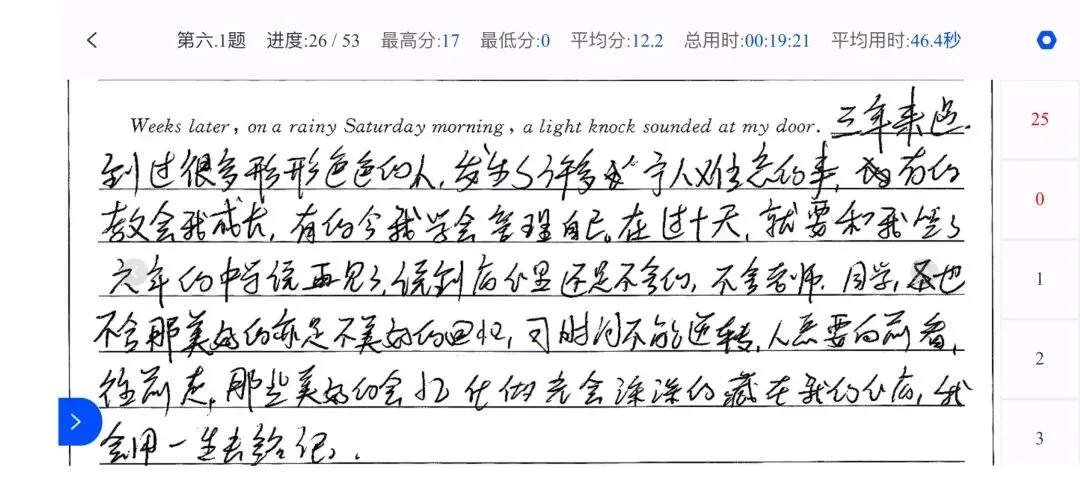 第六.1题 进度:26 / 53 最高分:17 最低分:0 平均分:12.2 总用时:00:19:21 平均用时:46.4秒
Weeks later, on a rainy Saturday morning, a light knock sounded at my door. 三年来遇
到过很多形形色色的人,发生了许多令人难忘的事,有的
教会我成长,有的令我学会管理自己。在过十天,就要和我待了
六年的中学说再见了,说到底心里还是不舍的,不舍老师、同学,也
不舍那美好的亦是不美好的回忆,可时间不能逆转,人总要向前看,
往前走,那些美好的会忆化做光会深深的藏在我的心底,我
会用一生去铭记。
25
0
1
2
3